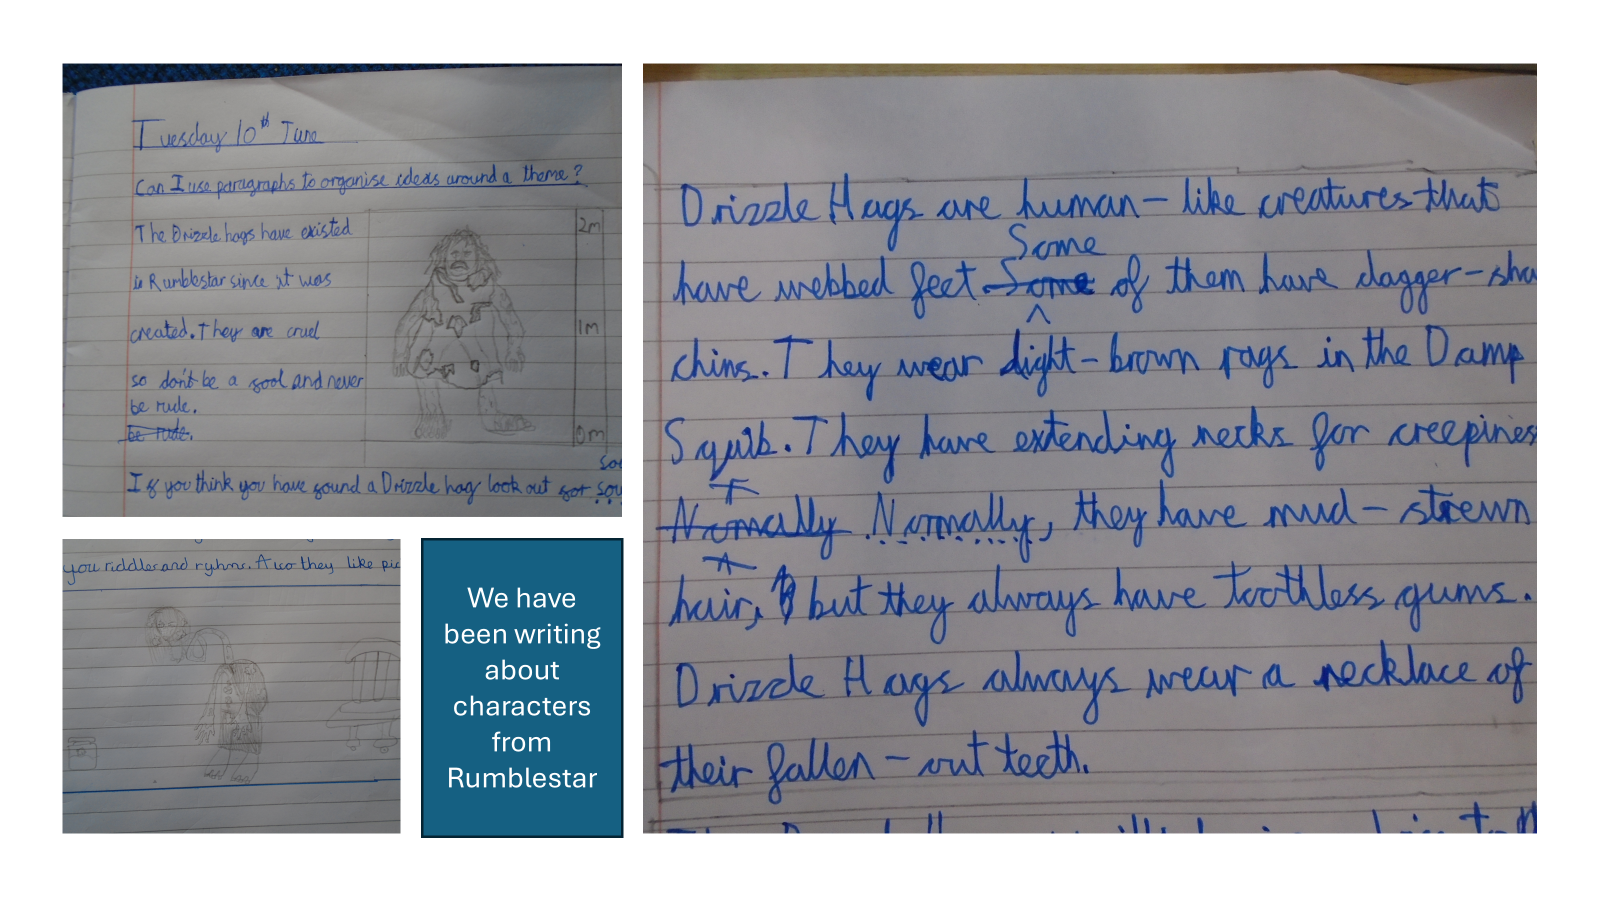 Tuesday 10th June
Can I use paragraphs to organise ideas around a theme?
The Drizzle hags have existed
in Rumblestar since it was
created. They are cruel
so don't be a fool and never
be rude.
be rude.
2m
1m
0m
If you think you have found a Drizzle hag look out for
you riddles and ryhms. Also they like
We have
been writing
about
characters
from
Rumblestar
Drizzle Hags are human-like creatures that
Some
have webbed feet. Some of them have dagger-sha
chins. They wear light-brown rags in the Damp
Squib. They have extending necks for creepines
Nomally Normally, they have mud-strewn
hair, but they always have toothless gums.
Drizzle Hags always wear a necklace of
their fallen-out teeth.